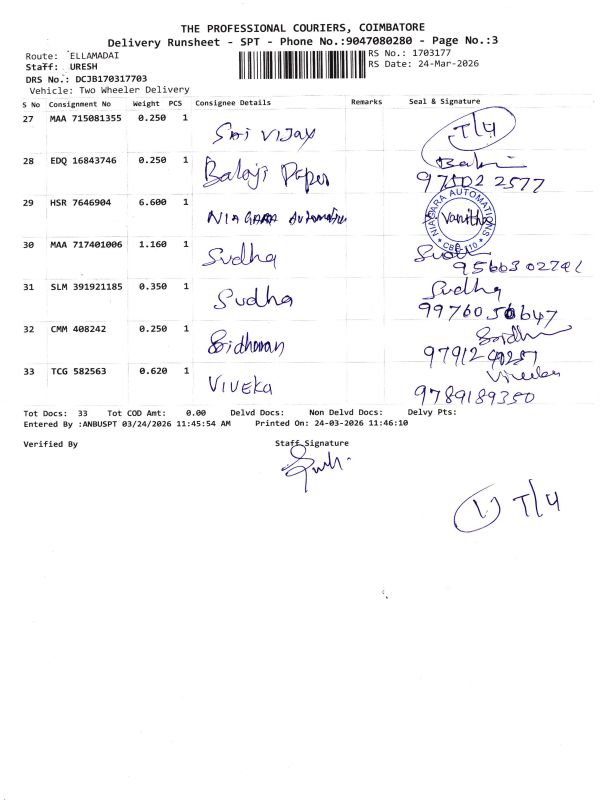 THE PROFESSIONAL COURIERS, COIMBATORE
Delivery Runsheet - SPT - Phone No.:9047080280 - Page No.:3
Route: ELLAMADAI
RS No.: 1703177
Staff: URESH
RS Date: 24-Mar-2026
DRS No.: DCJB170317703
Vehicle: Two Wheeler Delivery
S No Consignment No Weight PCS Consignee Details Remarks Seal & Signature
27 MAA 715081355 0.250 1 Sri VIJAY T/4
28 EDQ 16843746 0.250 1 Balaji Paper
29 HSR 7646904 6.600 1 NIAGARA Automation Vanitha
NIAGARA AUTOMATIONS
30 MAA 717401006 1.160 1 Sudha
31 SLM 391921185 0.350 1 Sudha Sudha
9976056647
32 CMM 408242 0.250 1 Sridharan
33 TCG 582563 0.620 1 VIVEKA
9789189350
Tot Docs: 33 Tot COD Amt: 0.00 Delvd Docs: Non Delvd Docs: Delvy Pts:
Entered By :ANBUSPT 03/24/2026 11:45:54 AM Printed On: 24-03-2026 11:46:10
Verified By Staff Signature
1 T/4